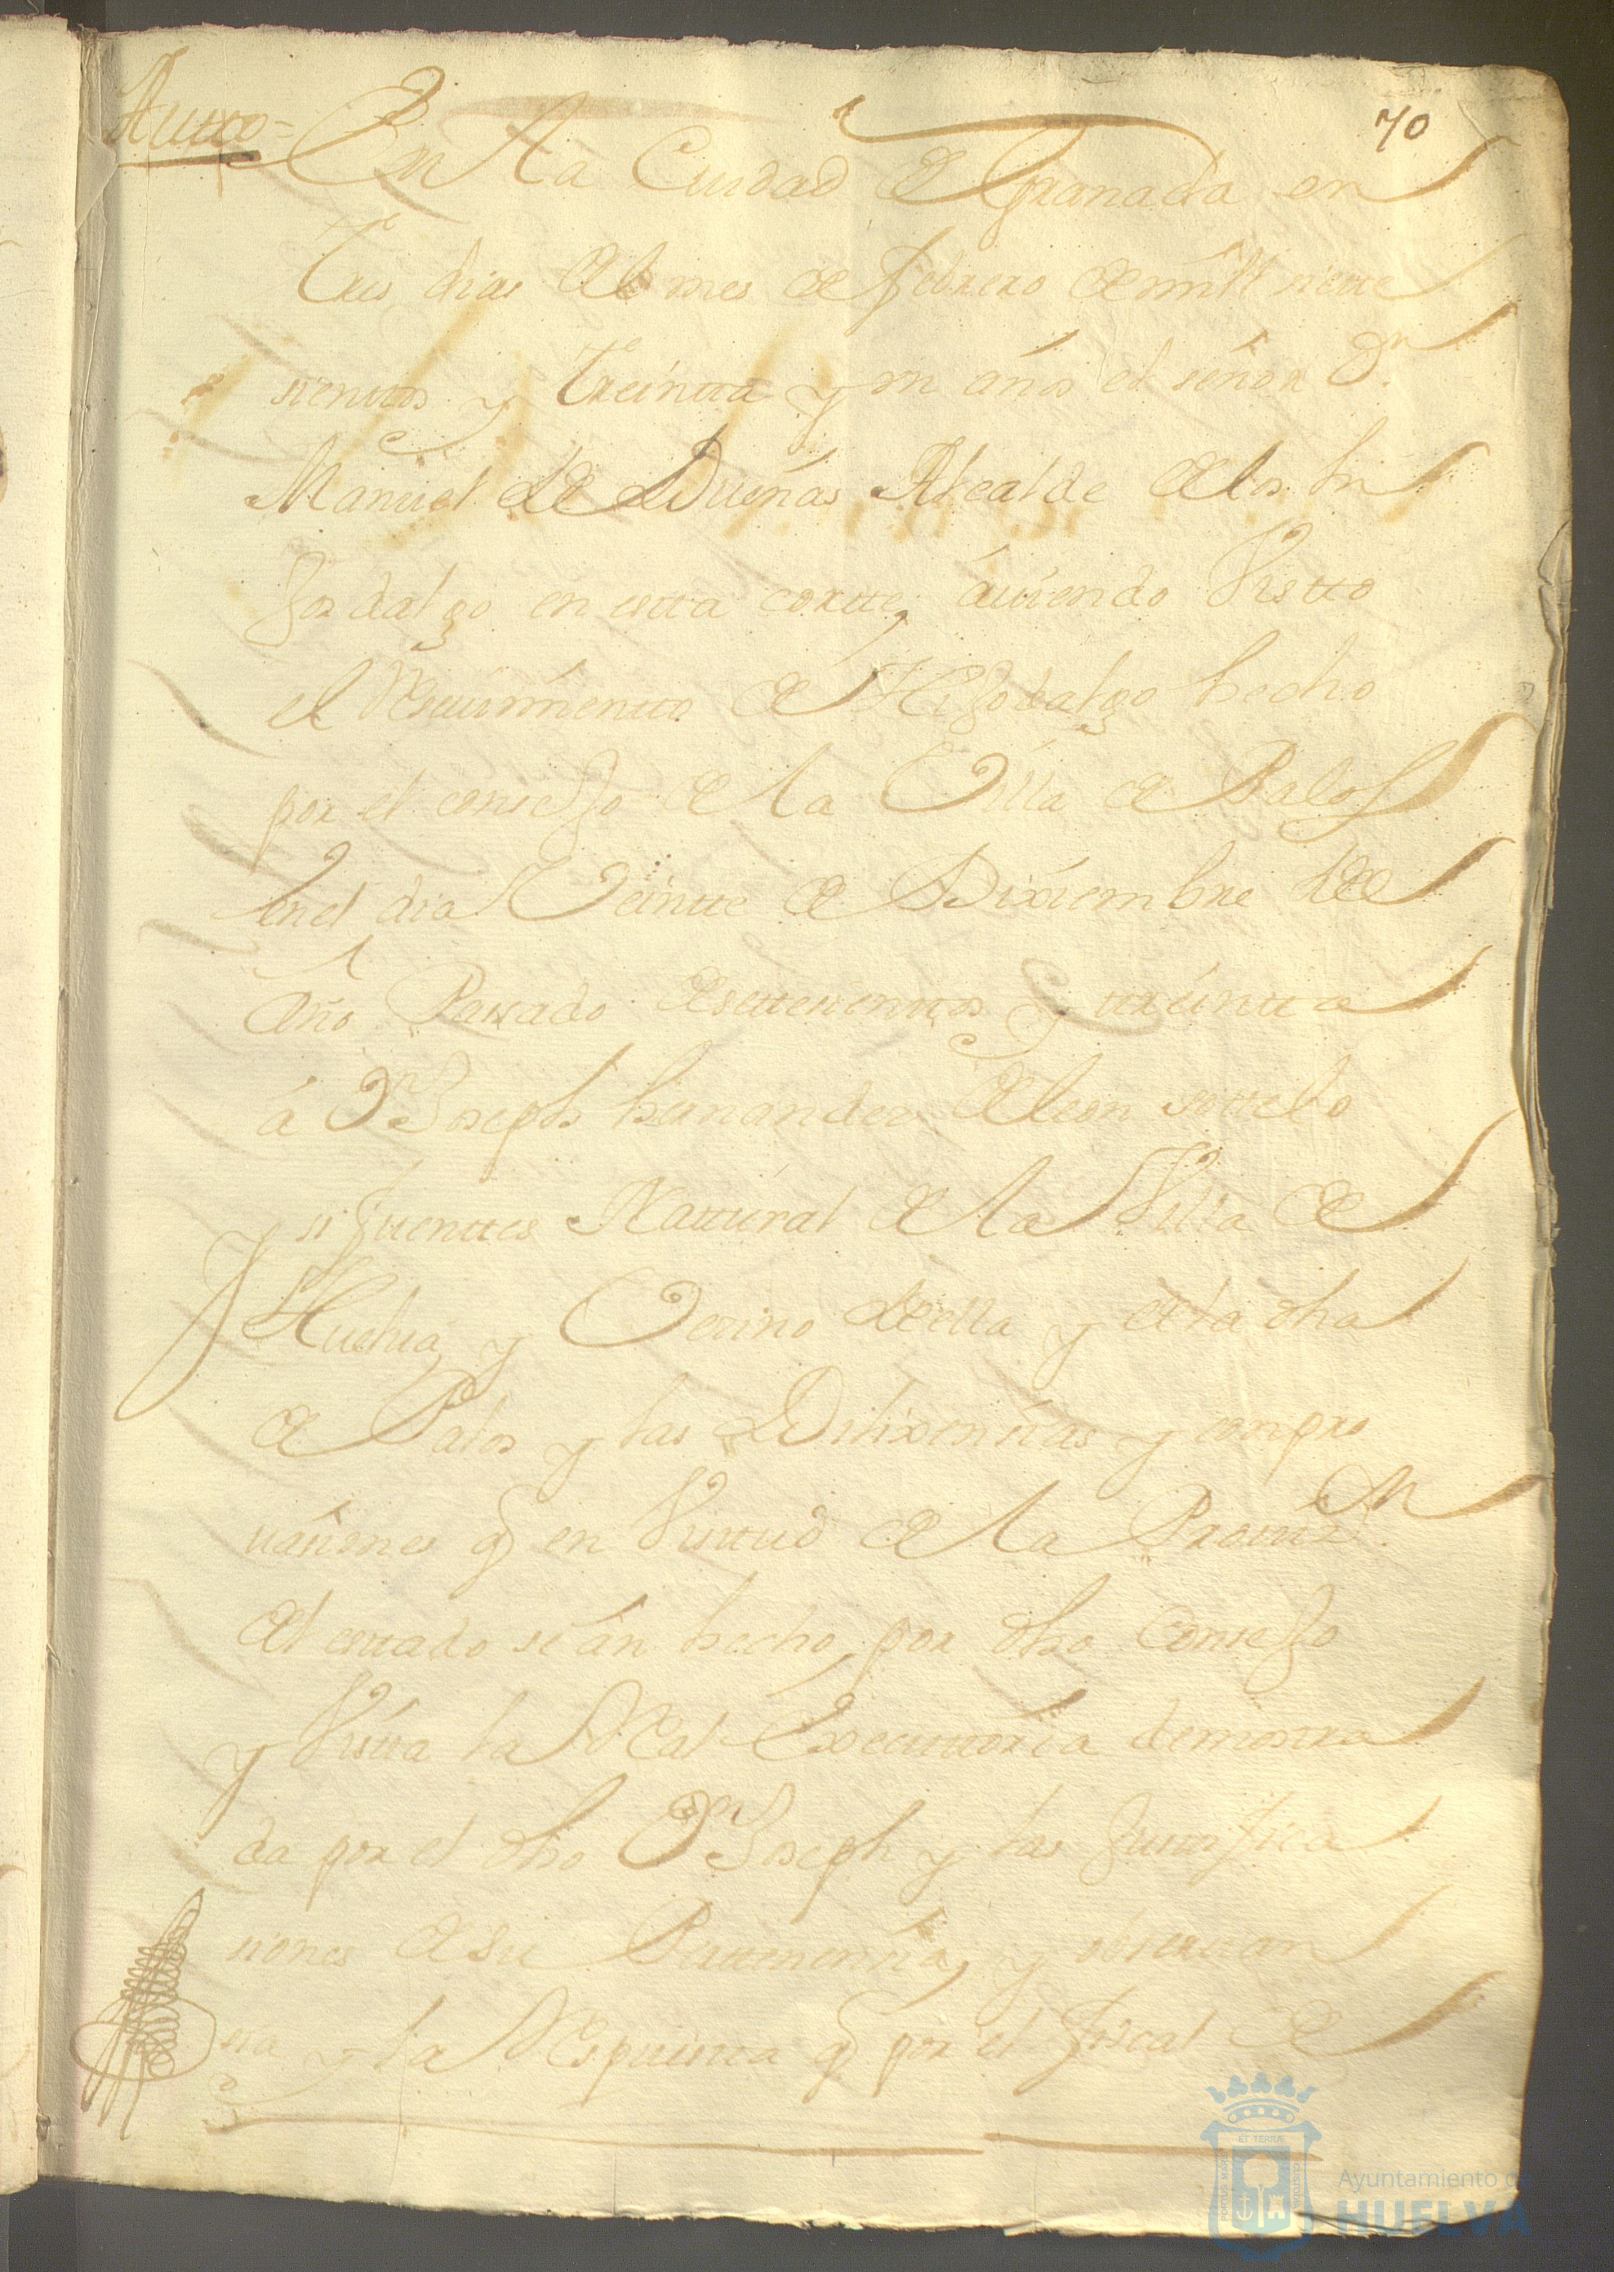 70
Autto= En La Ciudad de Granada en
Tres dias del mes de Febrero de mill siette
sienttos y treintta y un años el señor Dn
Manuel de Dueñas Alcalde de los hi
Josdalgo en estta cortte, auiendo Vistto
el Reciuimientto de Hijodalgo hecho
por el consejo de la Villa de Palos
en el dia Veintte de Diziembre del
Año Passado de settesienttos y treintta
á Dn Joseph hernandez de leon sottelo
y sifuenttes Nattural de la Villa de
Huelua, y Vezino de ella y de la dha
de Palos y las Dilixensias y conpro
uasiones q en Virttud de la Prouizn
de el esttado se án hecho por dho Consejo
y Vistta la Real Executtoria demostra
da por el dho Dn Joseph y las Justifica
siones de su Perttenensia, y obseruan
sia y la Respuestta q por el fiscal de
PORTUS MARIS ET TERRÆ CUSTODIA
Ayuntamiento de
HUELVA